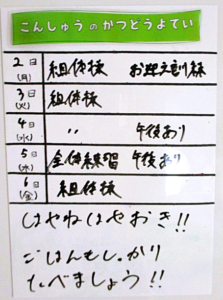 こんしゅうのかつどうよてい
2日(月) 組体操 お迎え訓練
3日(火) 組体操
4日(水) 〃 午後あり
5日(木) 全体練習 午後あり
6日(金) 組体操
はやねはやおき!!
ごはんもしっかり
たべましょう!!